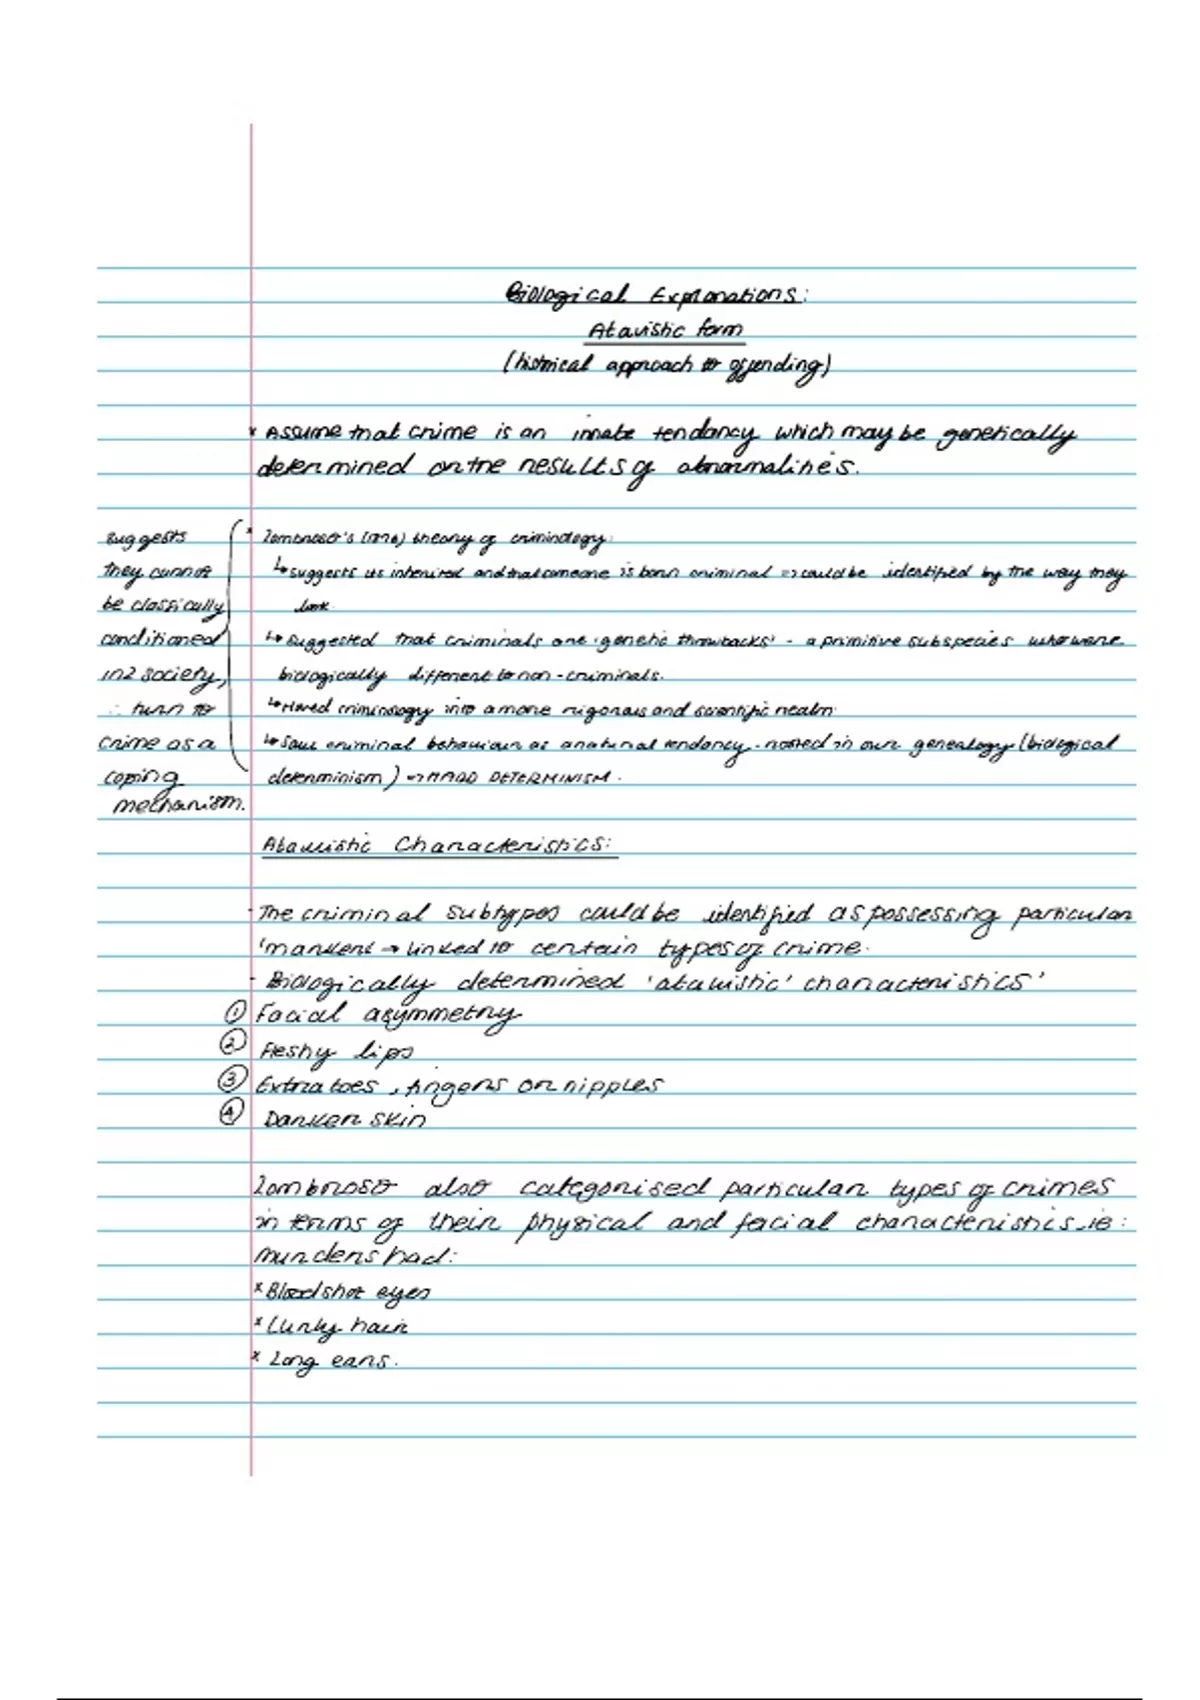 Biological Explanations:
Atavistic form
(historical approach to offending)
* Assume that crime is an innate tendancy which may be genetically
determined or the results of abnormalities.
suggests
they cannot
be classically
conditioned
in2 society,
∴ turn to
crime as a
coping
mechanism.
* Lombroso's (1876) theory of criminology:
↳ suggests its inherited and that someone is born criminal => could be identified by the way they
look.
↳ Suggested that criminals are 'genetic throwbacks' - a primitive subspecies who were
biologically different to non-criminals.
↳ Moved criminology into a more rigorous and scientific realm
↳ Saw criminal behaviour as a natural tendancy - rooted in our genealogy (biological
determinism) → HARD DETERMINISM.
Atavistic Characteristics:
- The criminal subtypes could be identified as possessing particular
'markers' → linked to certain types of crime.
- Biologically determined 'atavistic' characteristics'
① Facial asymmetry
② Fleshy lips
③ Extra toes, fingers or nipples
④ Darker skin
Lombroso also categorised particular types of crimes
in terms of their physical and facial characteristics, ie:
murders had:
* Bloodshot eyes
* Curly hair
* Long ears.